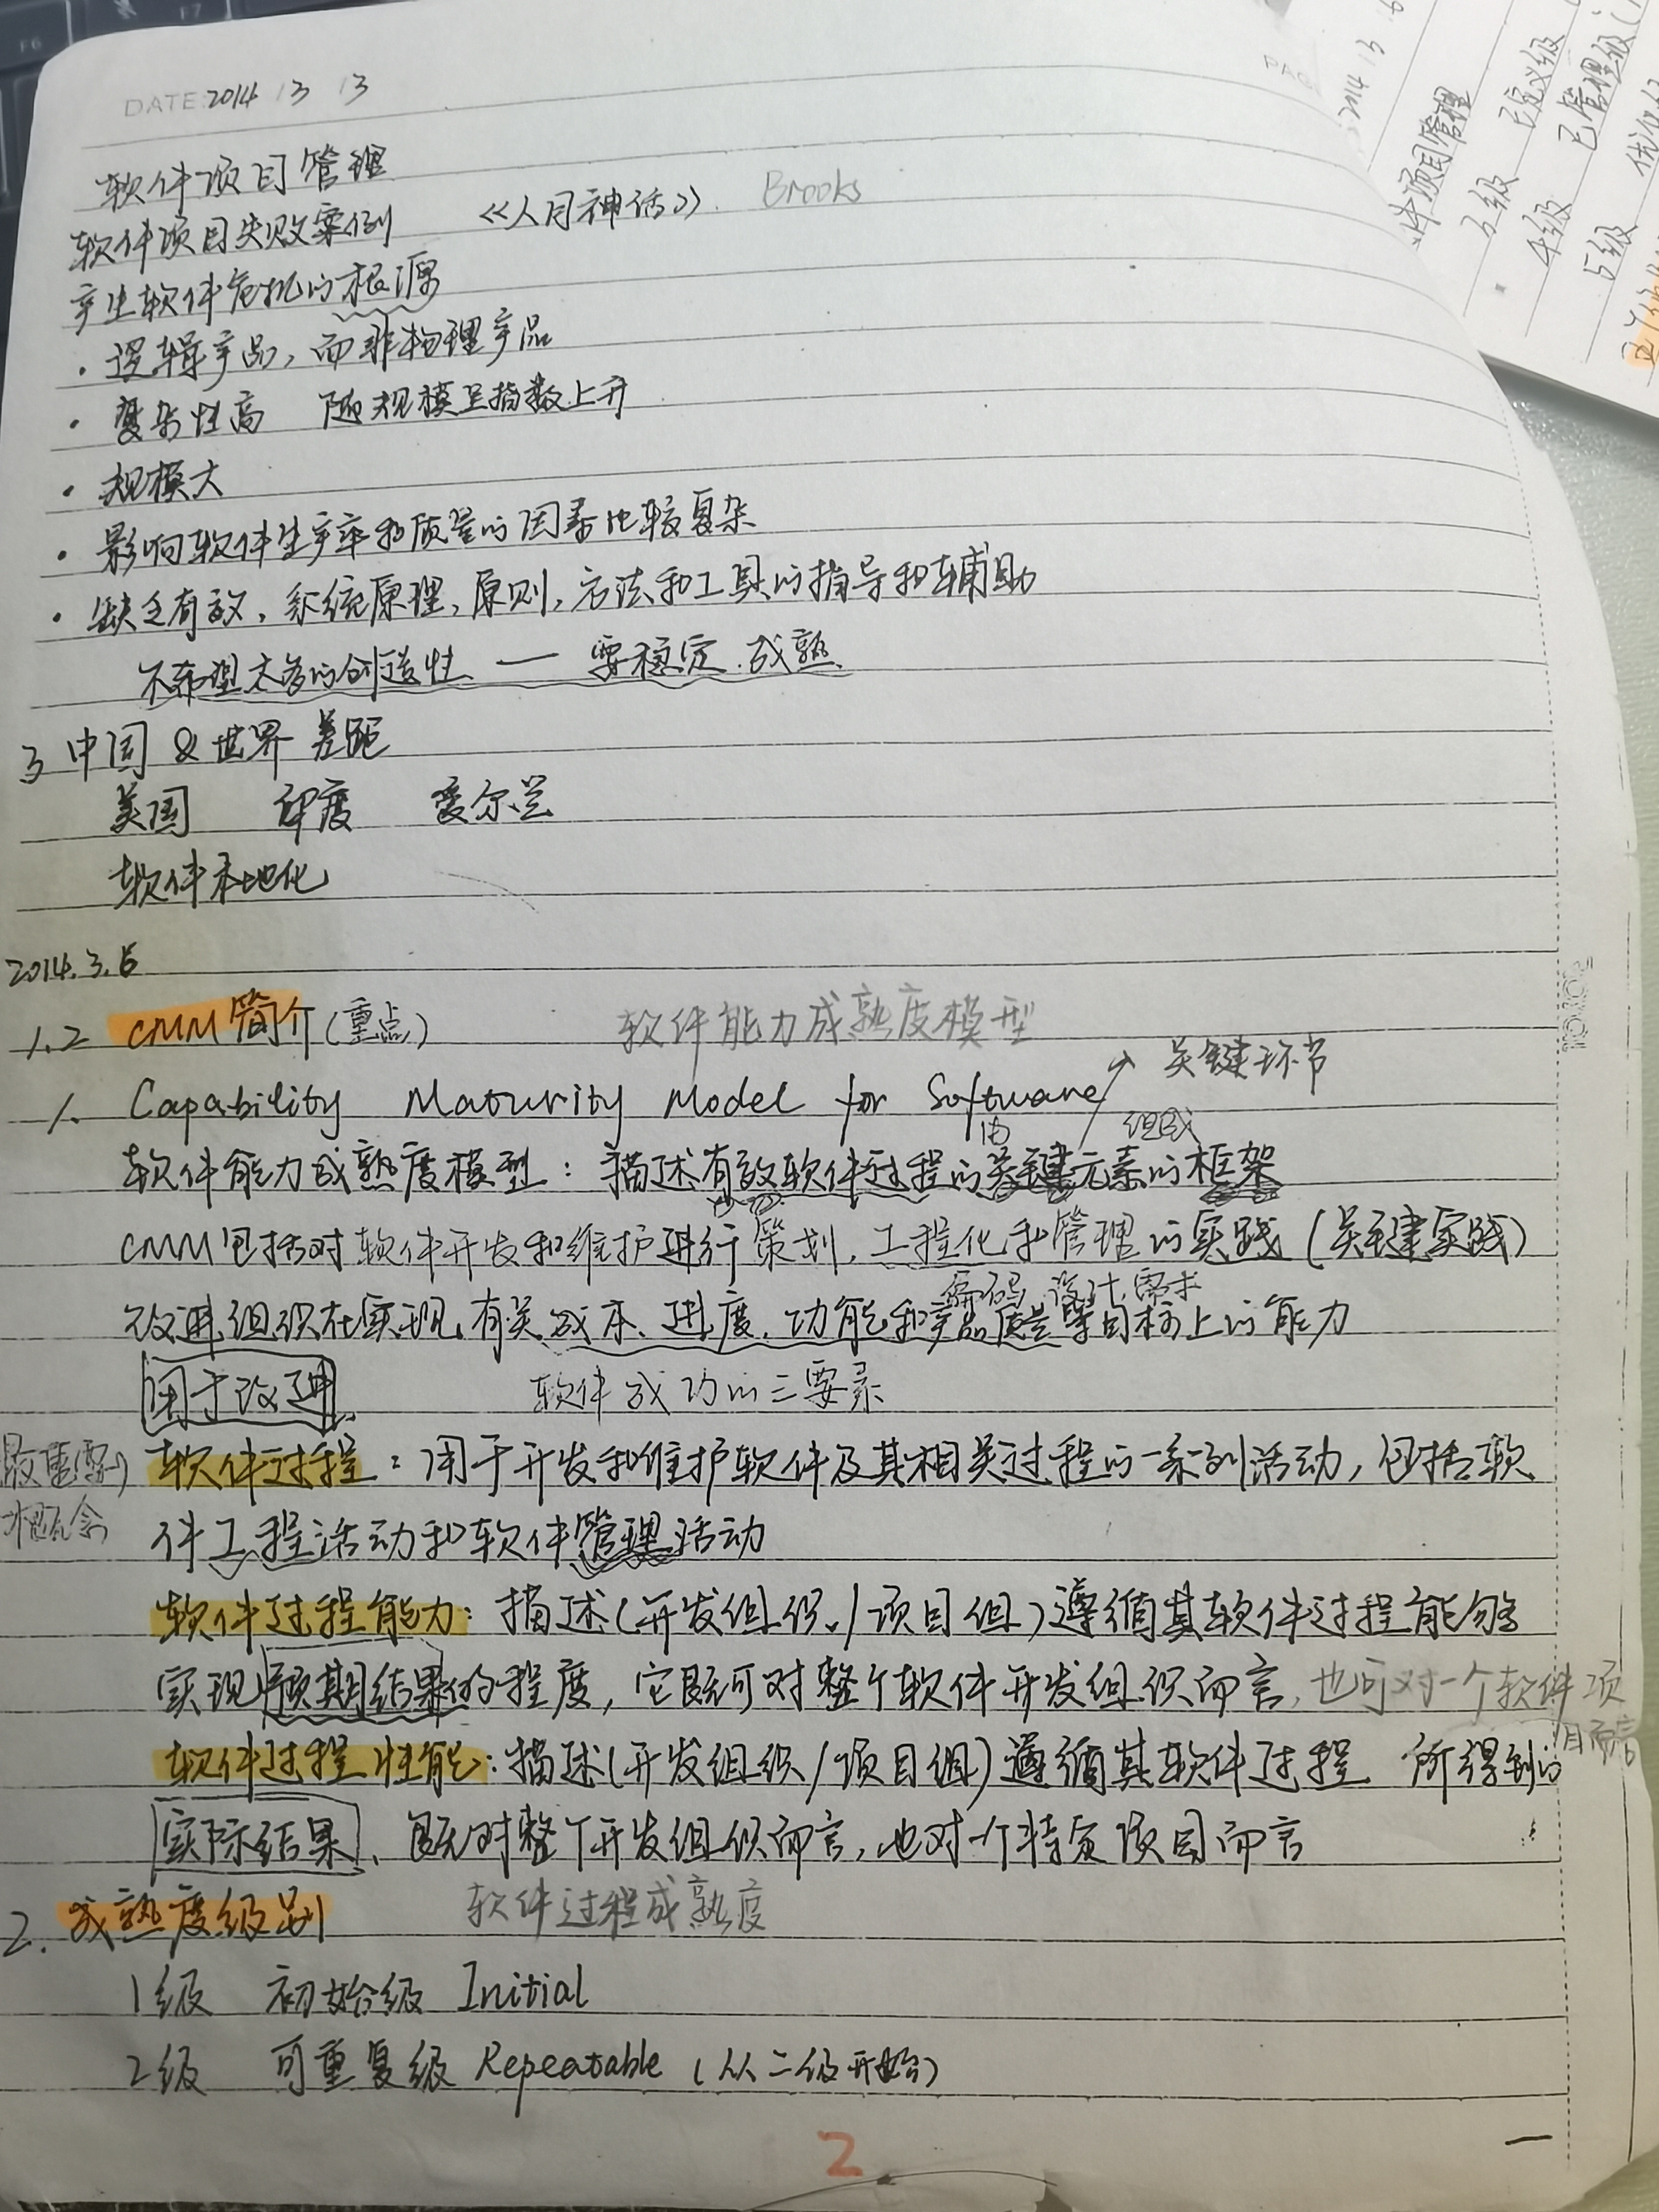 DATE 2014 3 3
软件项目管理
软件项目失败案例 《人月神话》. Brooks
产生软件危机的根源
· 逻辑产品,而非物理产品
· 复杂性高 随规模呈指数上升
· 规模大
· 影响软件生产率和质量的因素比较复杂
· 缺乏有效,系统原理,原则,方法和工具的指导和辅助
不希望太多的创造性 — 要稳定.成熟
3 中国 & 世界 差距
美国 印度 爱尔兰
软件本地化
2014.3.6
1.2 CMM简介(重点) 软件能力成熟度模型
关键环节
1. Capability Maturity Model for Software
由 组成
软件能力成熟度模型:描述有效软件过程的关键元素的框架
CMM包括对软件开发和维护进行策划,工程化和管理的实践(关键实践)
编码 设计 需求
改进组织在实现有关成本、进度、功能和产品质量等目标上的能力
用于改进 软件成功的三要素
最重要的 软件过程:用于开发和维护软件及其相关过程的一系列活动,包括软
概念 件工程活动和软件管理活动
软件过程能力:描述(开发组织/项目组)遵循其软件过程能够
实现预期结果的程度,它既可对整个软件开发组织而言,也可对一个软件项
目而言
软件过程性能:描述(开发组织/项目组)遵循其软件过程 所得到的
实际结果、既对整个开发组织而言,也对一个特定项目而言
2. 成熟度级别 软件过程成熟度
1级 初始级 Initial
2级 可重复级 Repeatable (从二级开始)
2
2014 3
件项目管理
3级 已定义级
4级 已管理级
5级